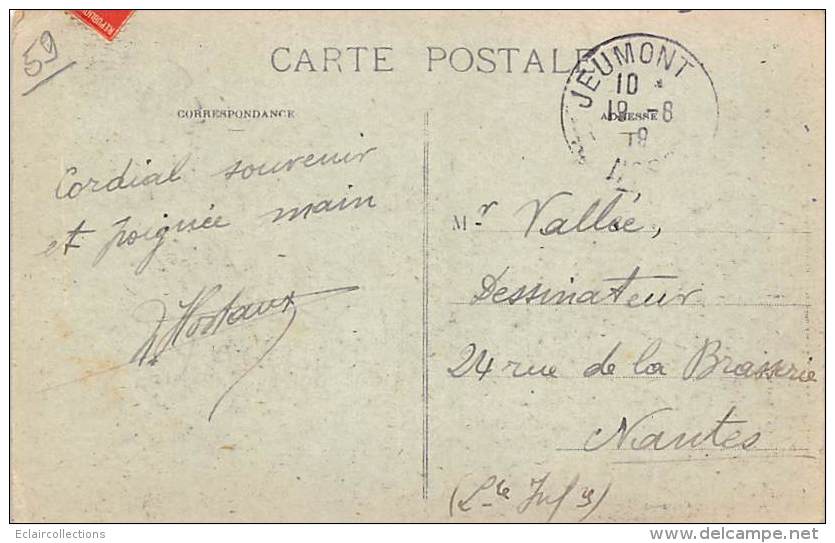 59
CARTE POSTALE
JEUMONT
10
19 - 8
CORRESPONDANCE
ADRESSE
Cordial souvenir
et poignée main
Mr Vallée,
Dessinateur
24 rue de la Brasserie
Nantes
(Lre Infre)
Eclaircollections
www.delcampe.net